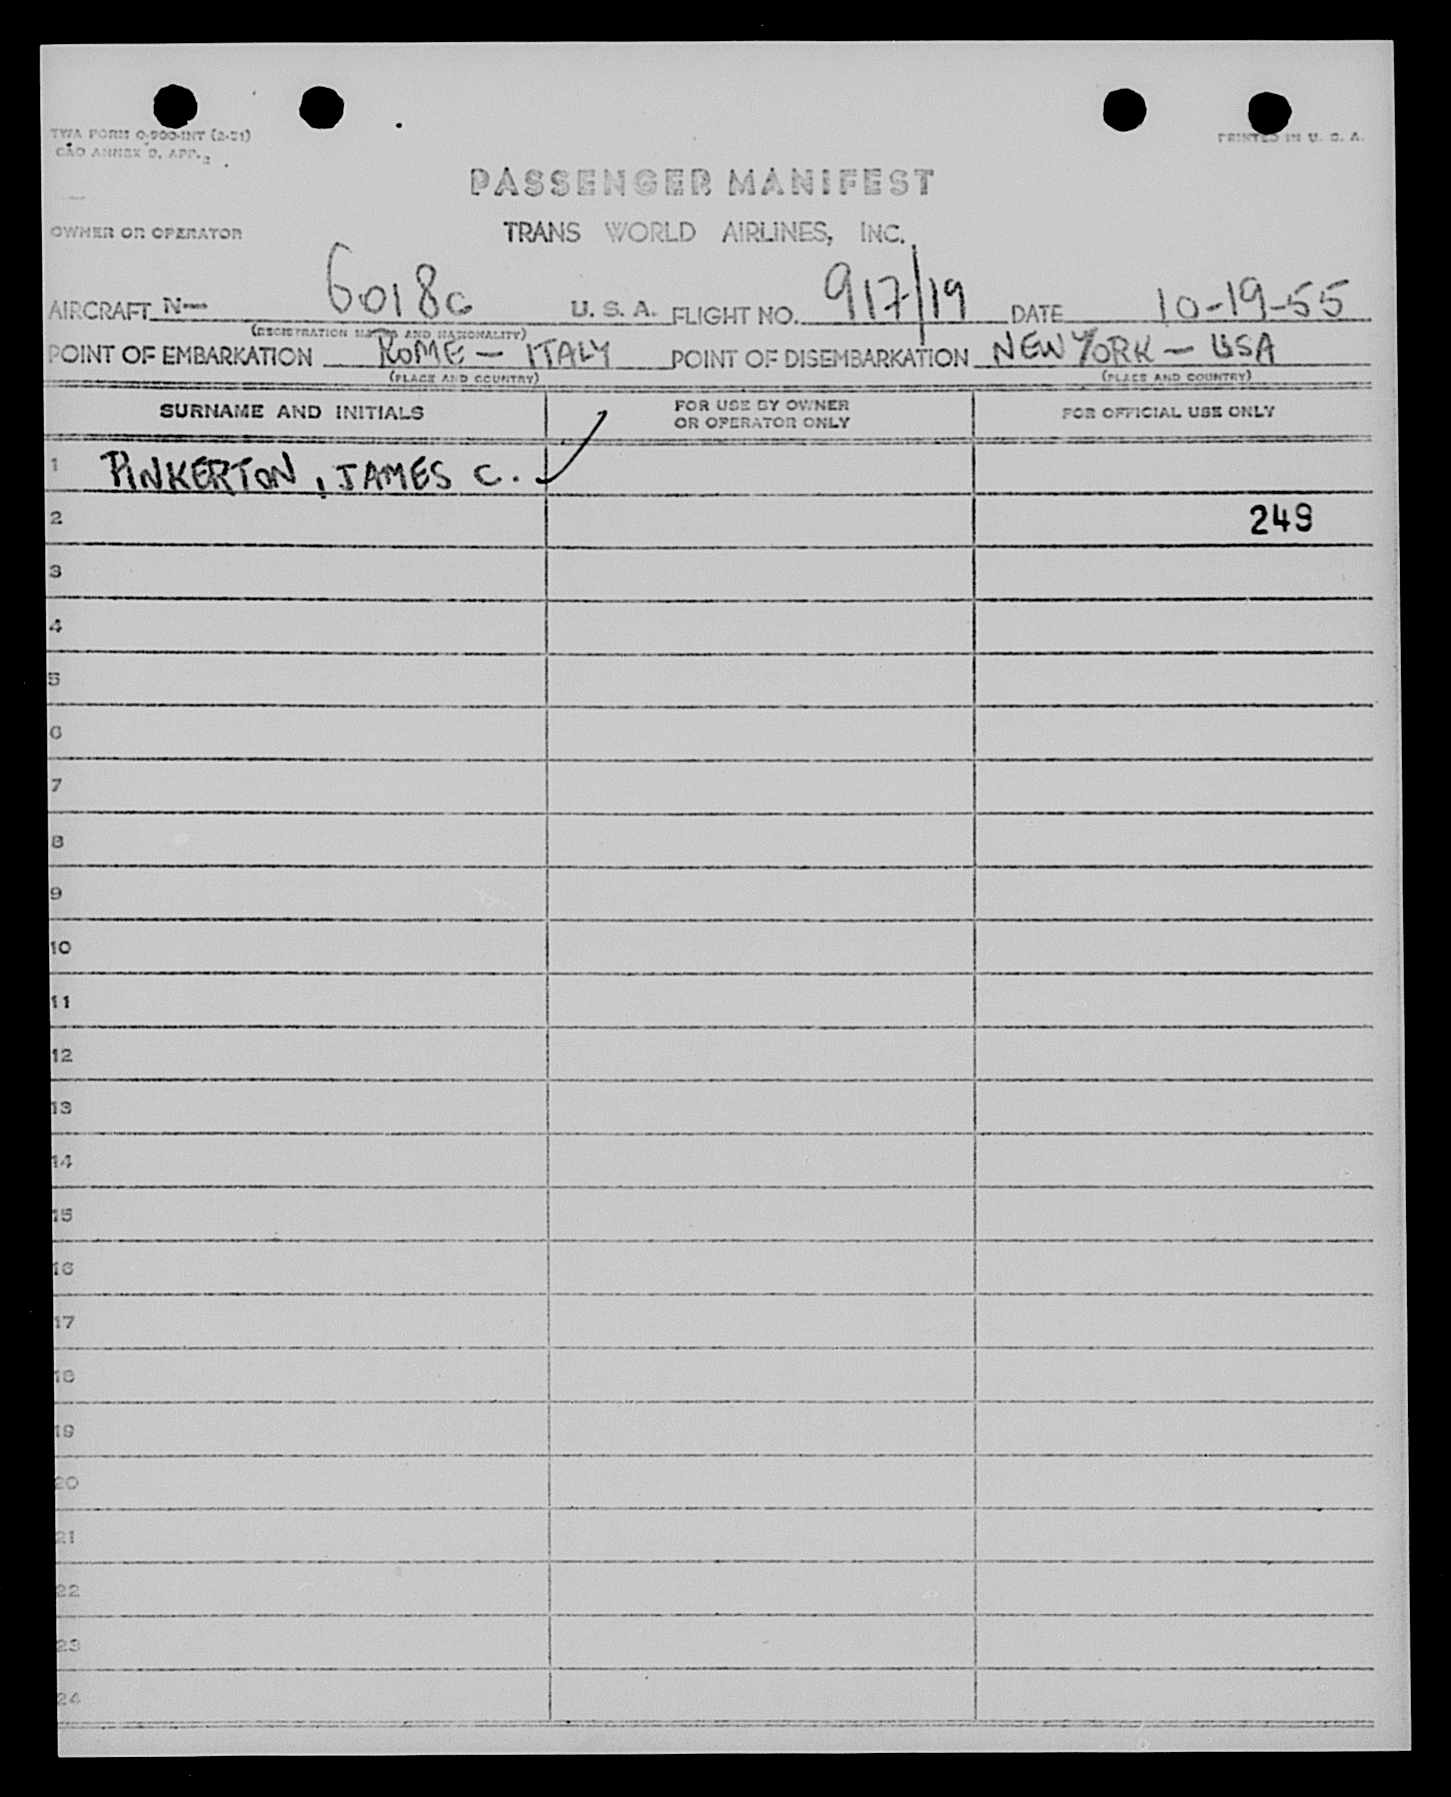 TWA FORM O-900-INT (2-51)
CAO ANNEX 9, APP. 2
PRINTED IN U. S. A.
PASSENGER MANIFEST
OWNER OR OPERATOR
TRANS WORLD AIRLINES, INC.
AIRCRAFT N— 6018C U. S. A. FLIGHT NO. 917/19 DATE 10-19-55
(REGISTRATION MARKS AND NATIONALITY)
POINT OF EMBARKATION ROME - ITALY POINT OF DISEMBARKATION NEW YORK - USA
(PLACE AND COUNTRY) (PLACE AND COUNTRY)
SURNAME AND INITIALS FOR USE BY OWNER OR OPERATOR ONLY FOR OFFICIAL USE ONLY
1 PINKERTON, JAMES C.
2 249
3
4
5
6
7
8
9
10
11
12
13
14
15
16
17
18
19
20
21
22
23
24